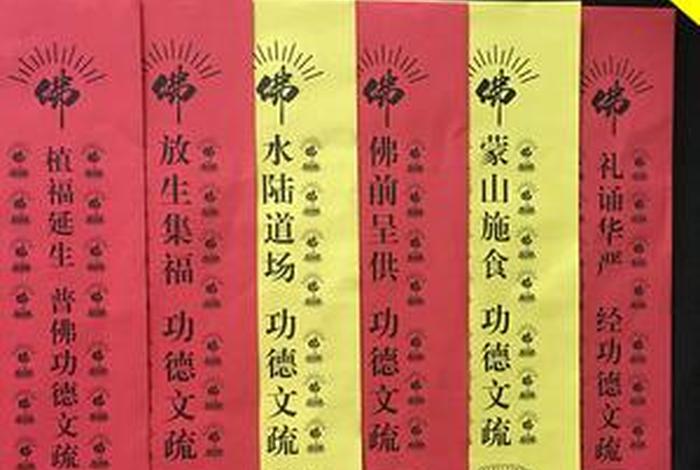 佛
植福延生 普佛功德文疏
佛
放生集福 功德文疏
佛
水陆道场 功德文疏
佛
佛前呈供 功德文疏
佛
蒙山施食 功德文疏
佛
礼诵华严 经功德文疏